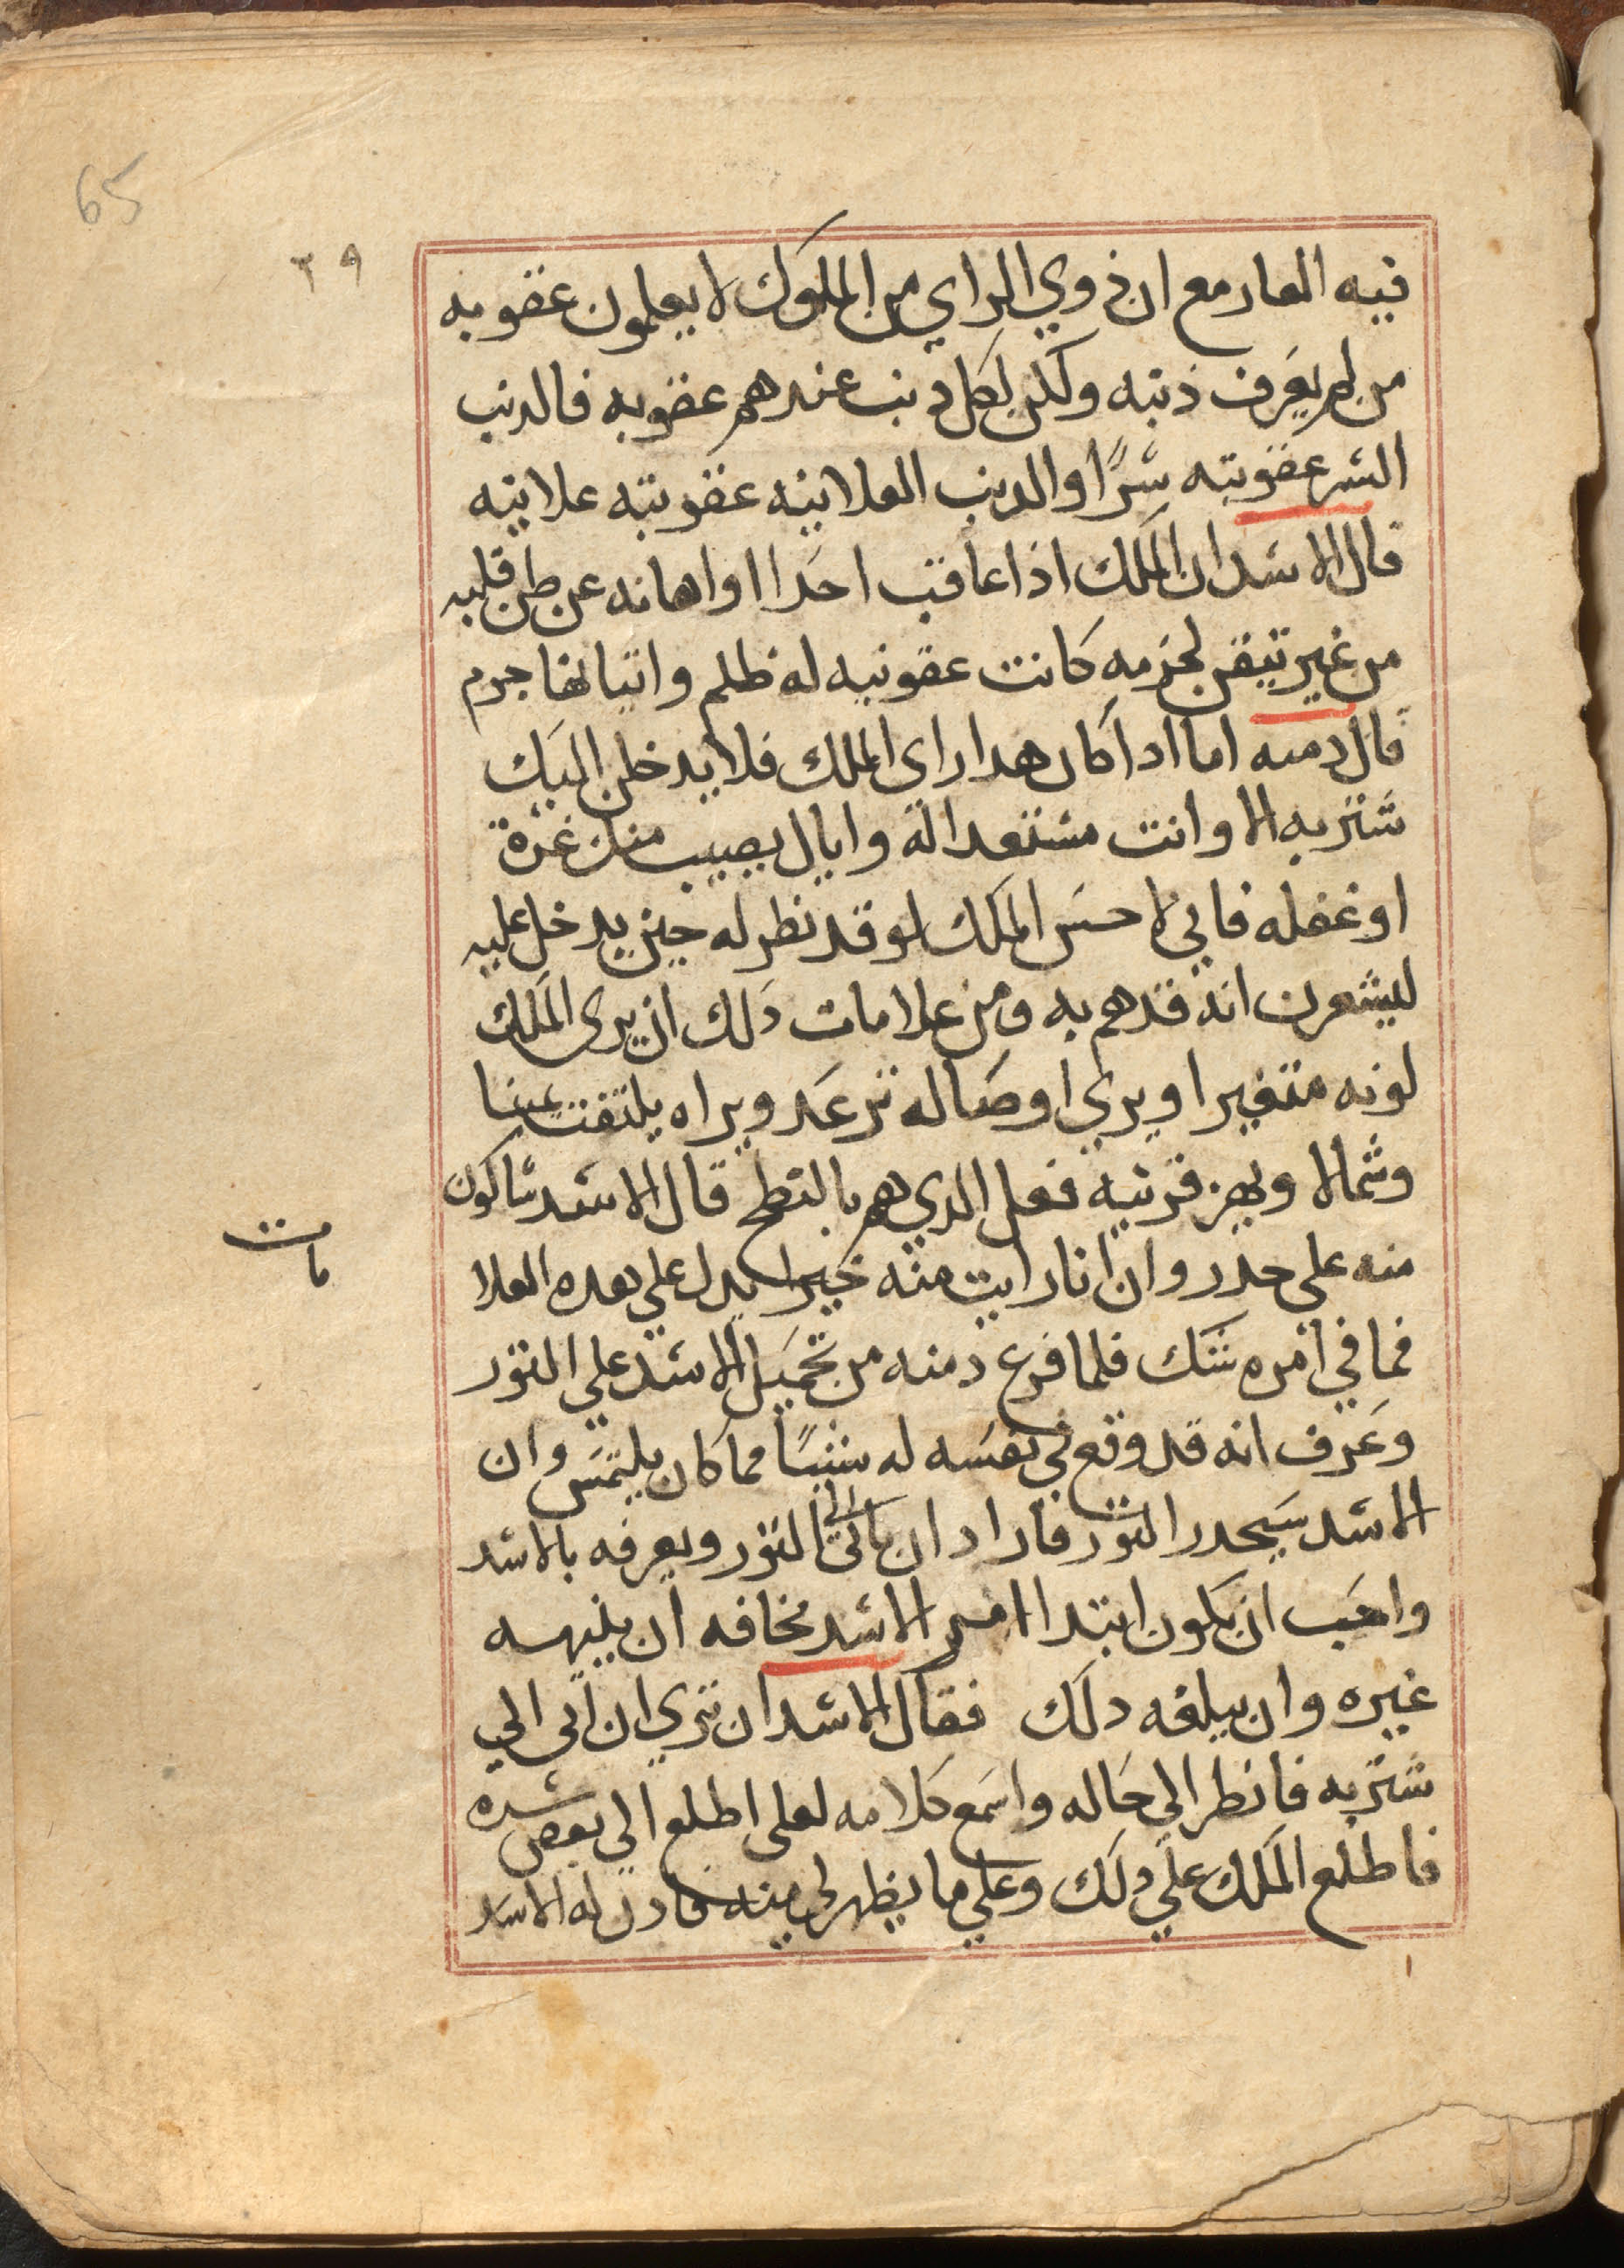 65
٣٩
فيه العار مع ان ذوي الراي من الملوك لا يعلمون عقوبه
من لم يعرف ذنبه ولكن لكل دنب عندهم عقوبه فالدنب
السر عقوبته سرًا والدنب العلانيه عقوبته علانيه
قال الاسد ان الملك اذا عاقب احدا او اهانه عن ظن قلبه
من غير تيقن لجرمه كانت عقوبته له ظلم واتيانها جرم
قال دمنه اما ادا كان هدا راى الملك فلا يدخلن اليك
شتربه الا وانت مستعدا له واياك يصيب منك غرة
او غفله فاني لاحسَ الملك لو قد نطر له حين يدخل عليه
ليشعرن انه قد هم به ومن علامات دلك ان يرى الملك
لونه متغيرا ويري اوصاله ترعد ويراه يلتفت يمينا
وشمالا ويهز قرنيه فعل الدي هم بالنطح قال الاسد ساكون
منه علي حدر وان انا رايت منه خيرا يدل علي هده العلا
مات
فما في امره شك فلما فرغ دمنه من تحميل الاسد علي الثور
وعرف انه قد وقع في نفسه له شيًا مما كان يلتمس وان
الاسد سيحدر الثور فاراد ان ياتى الى الثور ويعرفه بالاسد
واحب ان يكون ابتدا امر الاسد مخافه ان ينبهه
غيره وان يبلغه دلك فقال الاسد ان تري ان آتى الي
شتربه فانطر الي حاله واسمع كلامه لعلى اطلع الي بعض سره
فاطلع الملك علي دلك وعلي ما يظهر لي منه فادن له الاسد